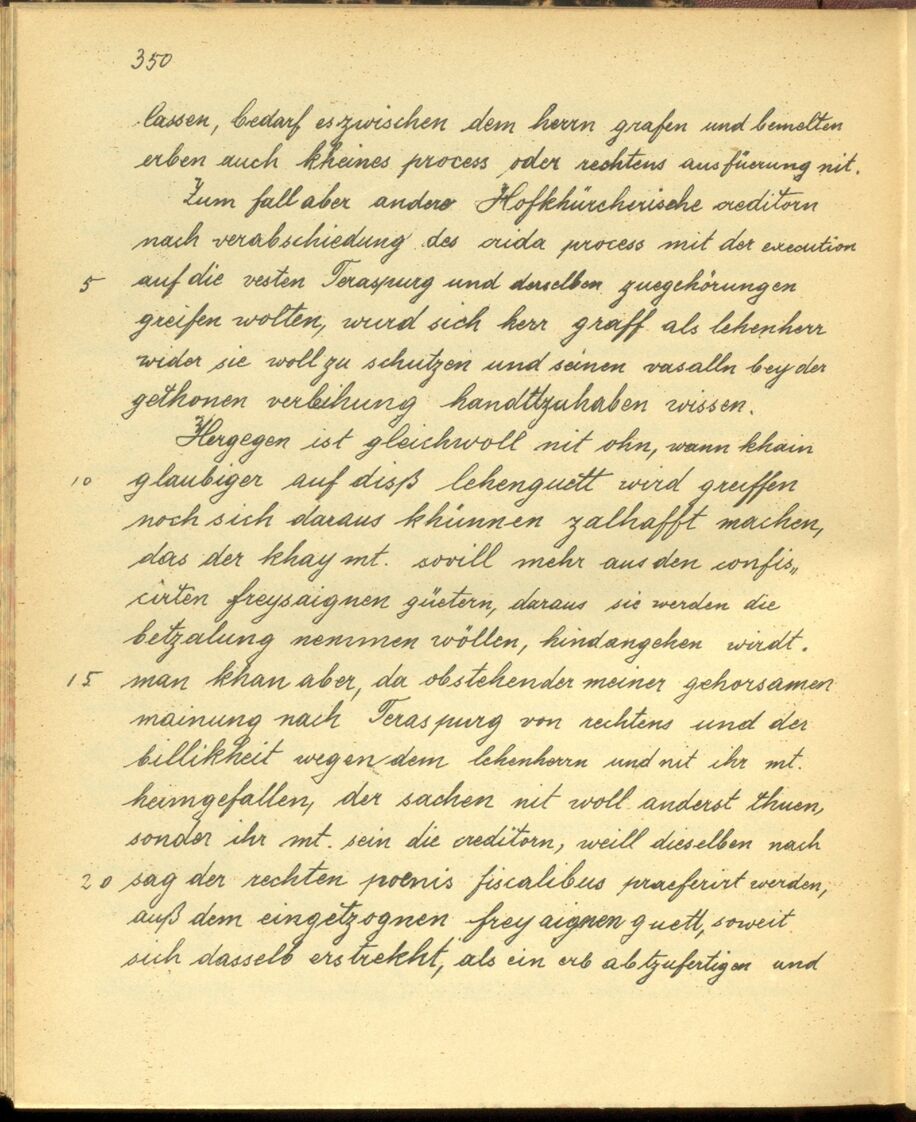 350
lassen, bedarf es zwischen dem herrn grafen und bemelten
erben auch kheines process oder rechtens ausfüerung nit.
Zum fall aber andere Hofkhürcherische creditorn
nach verabschiedung des crida process mit der execution
5 auf die vesten Teraspurg und derselben zuegehörungen
greifen wolten, wurd sich herr graff als lehenherr
wider sie woll zu schutzen und seinen vasalln bey der
gethonen verleihung handttzuhaben wissen.
Hergegen ist gleichwoll nit ohn, wann khain
10 glaubiger auf disß lehenguett wird greiffen
noch sich daraus khünnen zalhafft machen,
das der khay mt. sovill mehr aus den confis„
cirten freysaignen güetern, daraus sie werden die
betzalung nemmen wöllen, hindangehen wirdt.
15 man khan aber, da obstehender meiner gehorsamen
mainung nach Teraspurg von rechtens und der
billikheit wegen dem lehenherrn und nit ihr mt.
heimgefallen, der sachen nit woll anderst thuen,
sonder ihr mt. sein die creditorn, weill dieselben nach
20 sag der rechten poenis fiscalibus praeferirt werden,
auß dem eingetzognen frey aignen guett, soweit
sich dasselb erstrekht, als ein erb abtzufertigen und